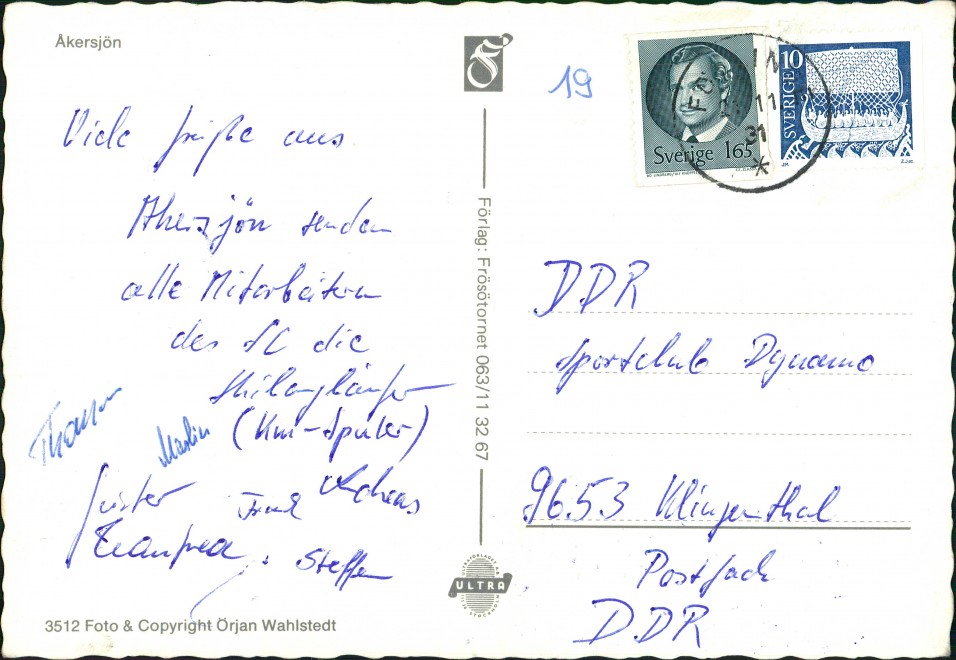 Åkersjön
19
Sverige 165
SVERIGE 10
11
31
Viele Grüße aus
Åkersjön senden
alle Mitarbeitern
des SC die
Skilangläufer
(Km-Spuler)
Thomas
Martin
Frank Andreas
Steffen
3512 Foto & Copyright Örjan Wahlstedt
Förlag: Frösötornet 063/11 32 67
ULTRA
DDR
Sportclub Dynamo
9653 Klingenthal
Postfach
DDR